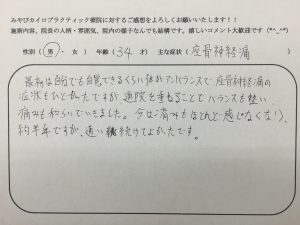 みやびカイロプラクティック療院に対するご感想をよろしくお願いいたします！！
施術内容、院長の人柄・雰囲気、院内の様子なんでも結構です。嬉しいコメント大歓迎です(*^_^*)
性別（男・女） 年齢（34才） 主な症状（座骨神経痛
最初は自分でも自覚できるくらい体がアンバランスで座骨神経痛の
症状もひどかったですが通院を重ねることでバランスも整い
痛みも和らいでいきました。今は痛みもほとんど感じなくなり、
約半年ですが、通い続けてよかったです。